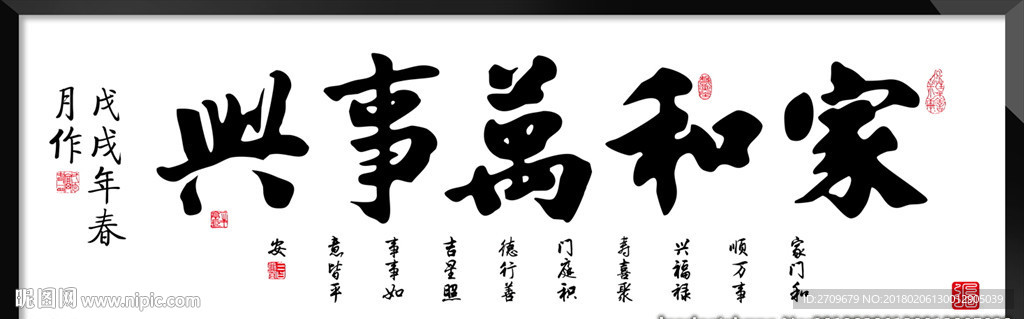 家和萬事興
家门和
顺万事
兴福禄
寿喜聚
门庭积
德行善
吉星照
事事如
意皆平
安
戊戌年春
月作
昵图网 www.nipic.com
ID:2709679 NO:20180206130012905039